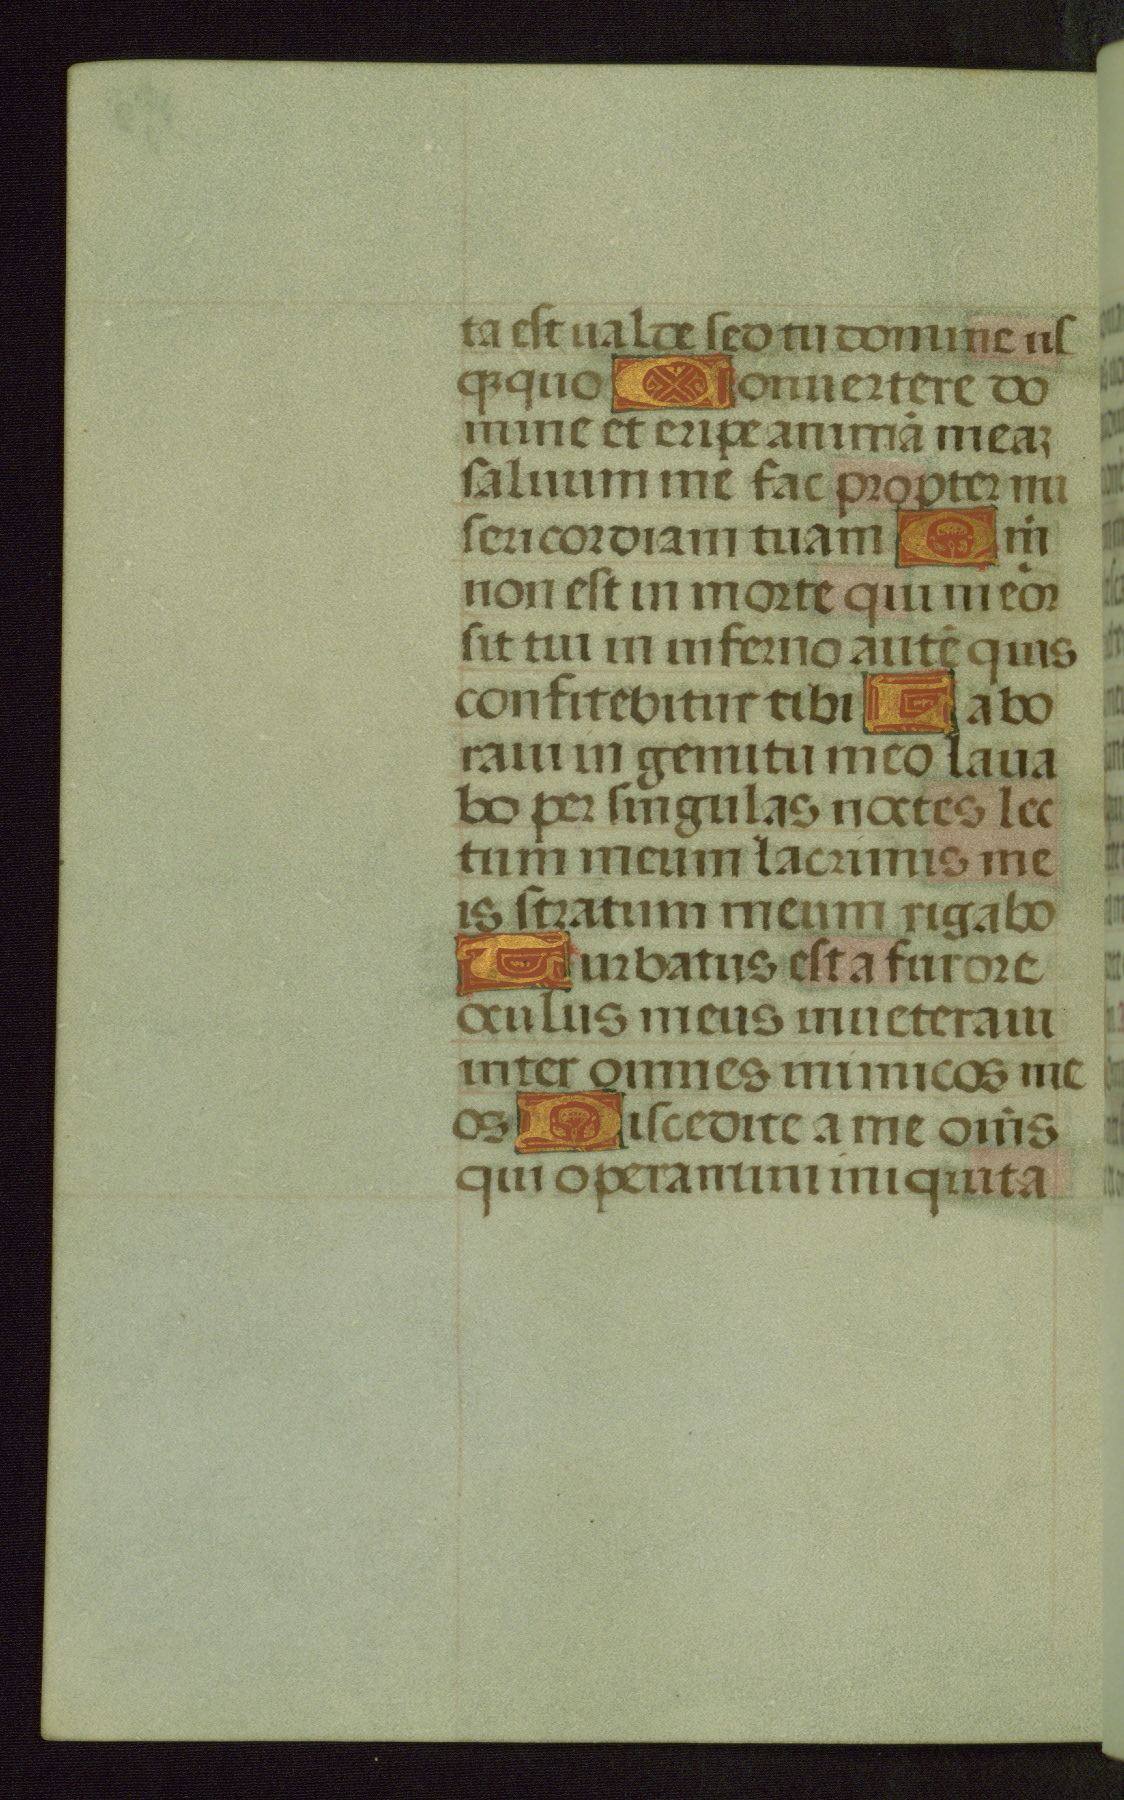 ta est ualde sed tu domine us
qꝫ quo Conuertere do
mine et eripe animā meaꝫ
saluum me fac propter mi
sericordiam tuam Qm̄
non est in morte qui meor
sit tui in inferno autē quis
confitebitur tibi Labo
raui in gemitu meo laua
bo per singulas noctes lec
tum meum lacrimis me
is stratum meum rigabo
Turbatus est a furore
oculus meus inueteraui
inter omnes inimicos me
os Discedite a me om̄s
qui operamini iniquita